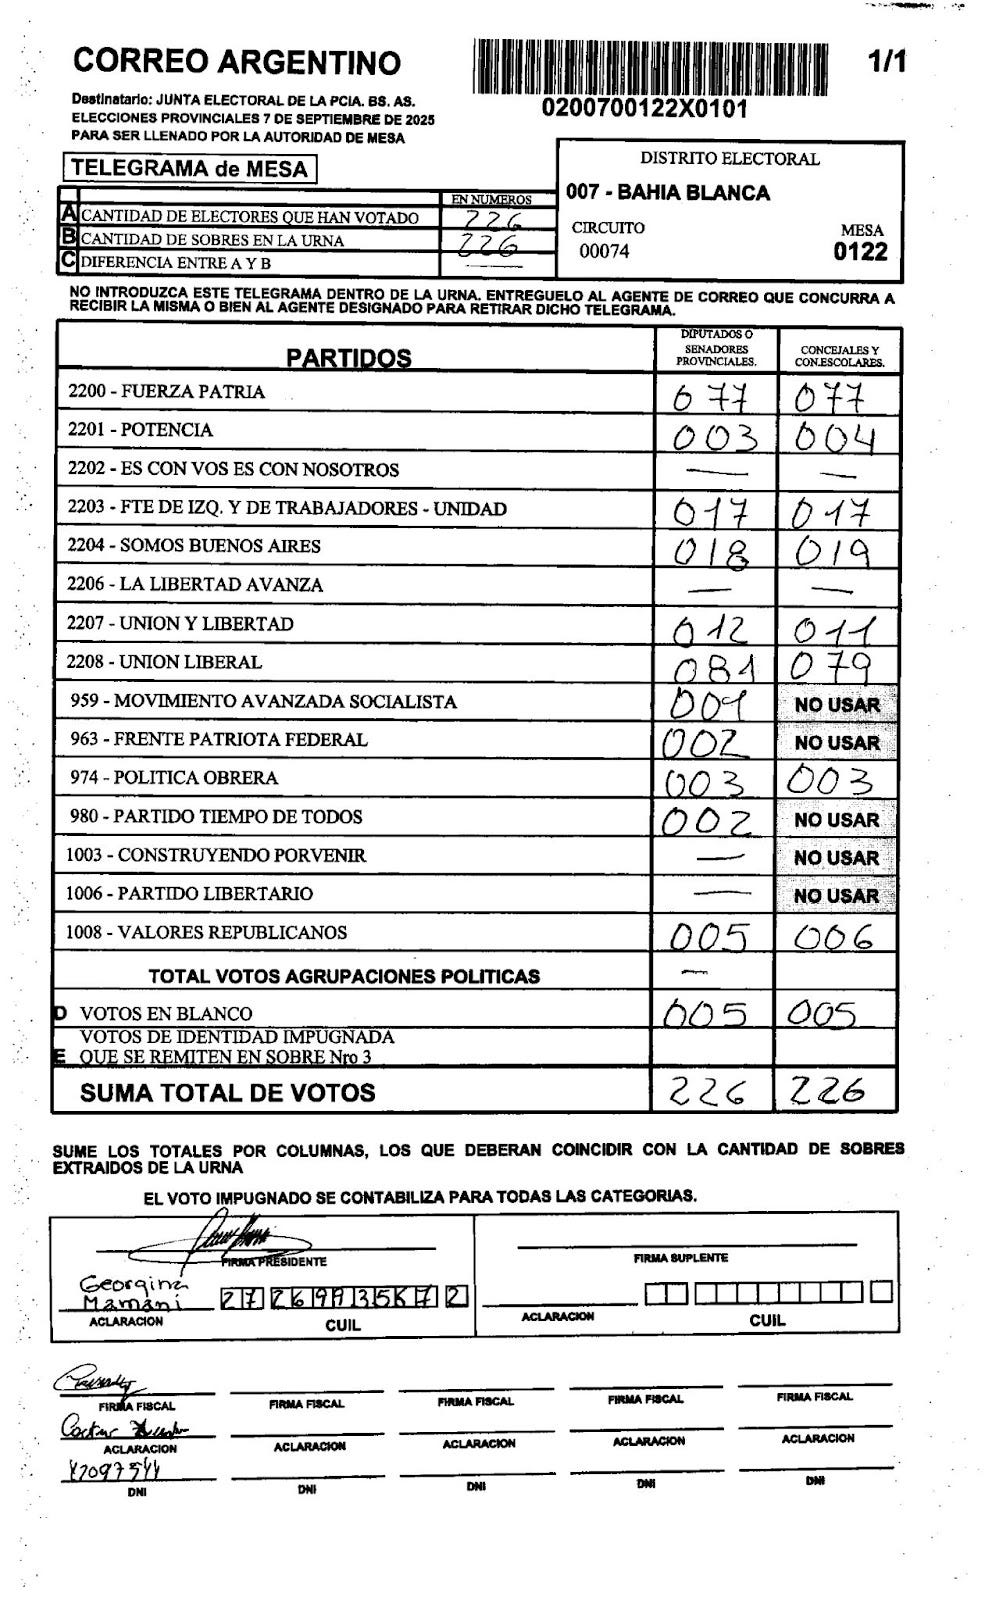 CORREO ARGENTINO
1/1
0200700122X0101
Destinatario: JUNTA ELECTORAL DE LA PCIA. BS. AS.
ELECCIONES PROVINCIALES 7 DE SEPTIEMBRE DE 2025
PARA SER LLENADO POR LA AUTORIDAD DE MESA
TELEGRAMA de MESA
DISTRITO ELECTORAL
007 - BAHIA BLANCA
CIRCUITO MESA
00074 0122
EN NUMEROS
A CANTIDAD DE ELECTORES QUE HAN VOTADO 226
B CANTIDAD DE SOBRES EN LA URNA 226
C DIFERENCIA ENTRE A Y B —
NO INTRODUZCA ESTE TELEGRAMA DENTRO DE LA URNA. ENTREGUELO AL AGENTE DE CORREO QUE CONCURRA A
RECIBIR LA MISMA O BIEN AL AGENTE DESIGNADO PARA RETIRAR DICHO TELEGRAMA.
PARTIDOS
DIPUTADOS O
SENADORES
PROVINCIALES.
CONCEJALES Y
CON.ESCOLARES.
2200 - FUERZA PATRIA 077 077
2201 - POTENCIA 003 004
2202 - ES CON VOS ES CON NOSOTROS — —
2203 - FTE DE IZQ. Y DE TRABAJADORES - UNIDAD 017 017
2204 - SOMOS BUENOS AIRES 018 019
2206 - LA LIBERTAD AVANZA — —
2207 - UNION Y LIBERTAD 012 011
2208 - UNION LIBERAL 081 079
959 - MOVIMIENTO AVANZADA SOCIALISTA 001 NO USAR
963 - FRENTE PATRIOTA FEDERAL 002 NO USAR
974 - POLITICA OBRERA 003 003
980 - PARTIDO TIEMPO DE TODOS 002 NO USAR
1003 - CONSTRUYENDO PORVENIR — NO USAR
1006 - PARTIDO LIBERTARIO — NO USAR
1008 - VALORES REPUBLICANOS 005 006
TOTAL VOTOS AGRUPACIONES POLITICAS —
D VOTOS EN BLANCO 005 005
VOTOS DE IDENTIDAD IMPUGNADA
E QUE SE REMITEN EN SOBRE Nro 3
SUMA TOTAL DE VOTOS 226 226
SUME LOS TOTALES POR COLUMNAS, LOS QUE DEBERAN COINCIDIR CON LA CANTIDAD DE SOBRES
EXTRAIDOS DE LA URNA
EL VOTO IMPUGNADO SE CONTABILIZA PARA TODAS LAS CATEGORIAS.
FIRMA PRESIDENTE
FIRMA SUPLENTE
Georgina
Mamani
ACLARACION CUIL
ACLARACION CUIL
FIRMA FISCAL FIRMA FISCAL FIRMA FISCAL FIRMA FISCAL FIRMA FISCAL
ACLARACION ACLARACION ACLARACION ACLARACION ACLARACION
DNI DNI DNI DNI DNI